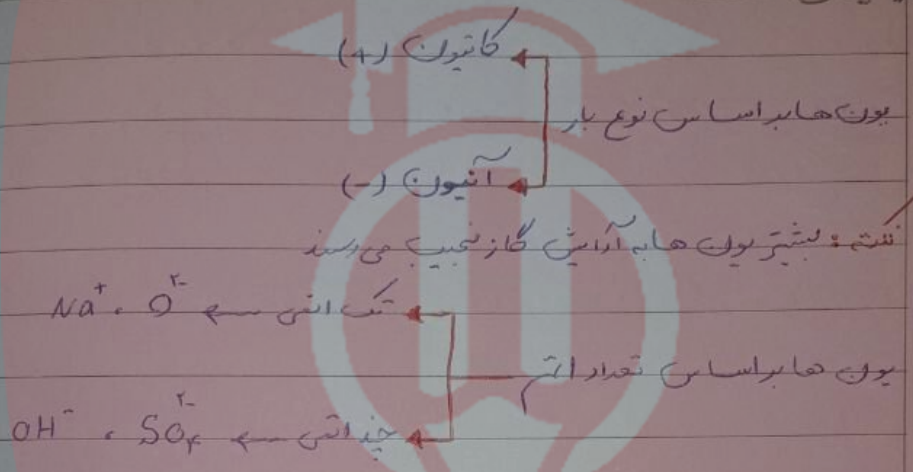 کاتیون (+)
یون ها بر اساس نوع بار
آنیون (-)
نکته: بیشتر یون ها به آرایش گاز نجیب می رسند
تک اتمی ← O²⁻ ، Na⁺
یون ها بر اساس تعداد اتم
چند اتمی ← SO₄²⁻ ، OH⁻